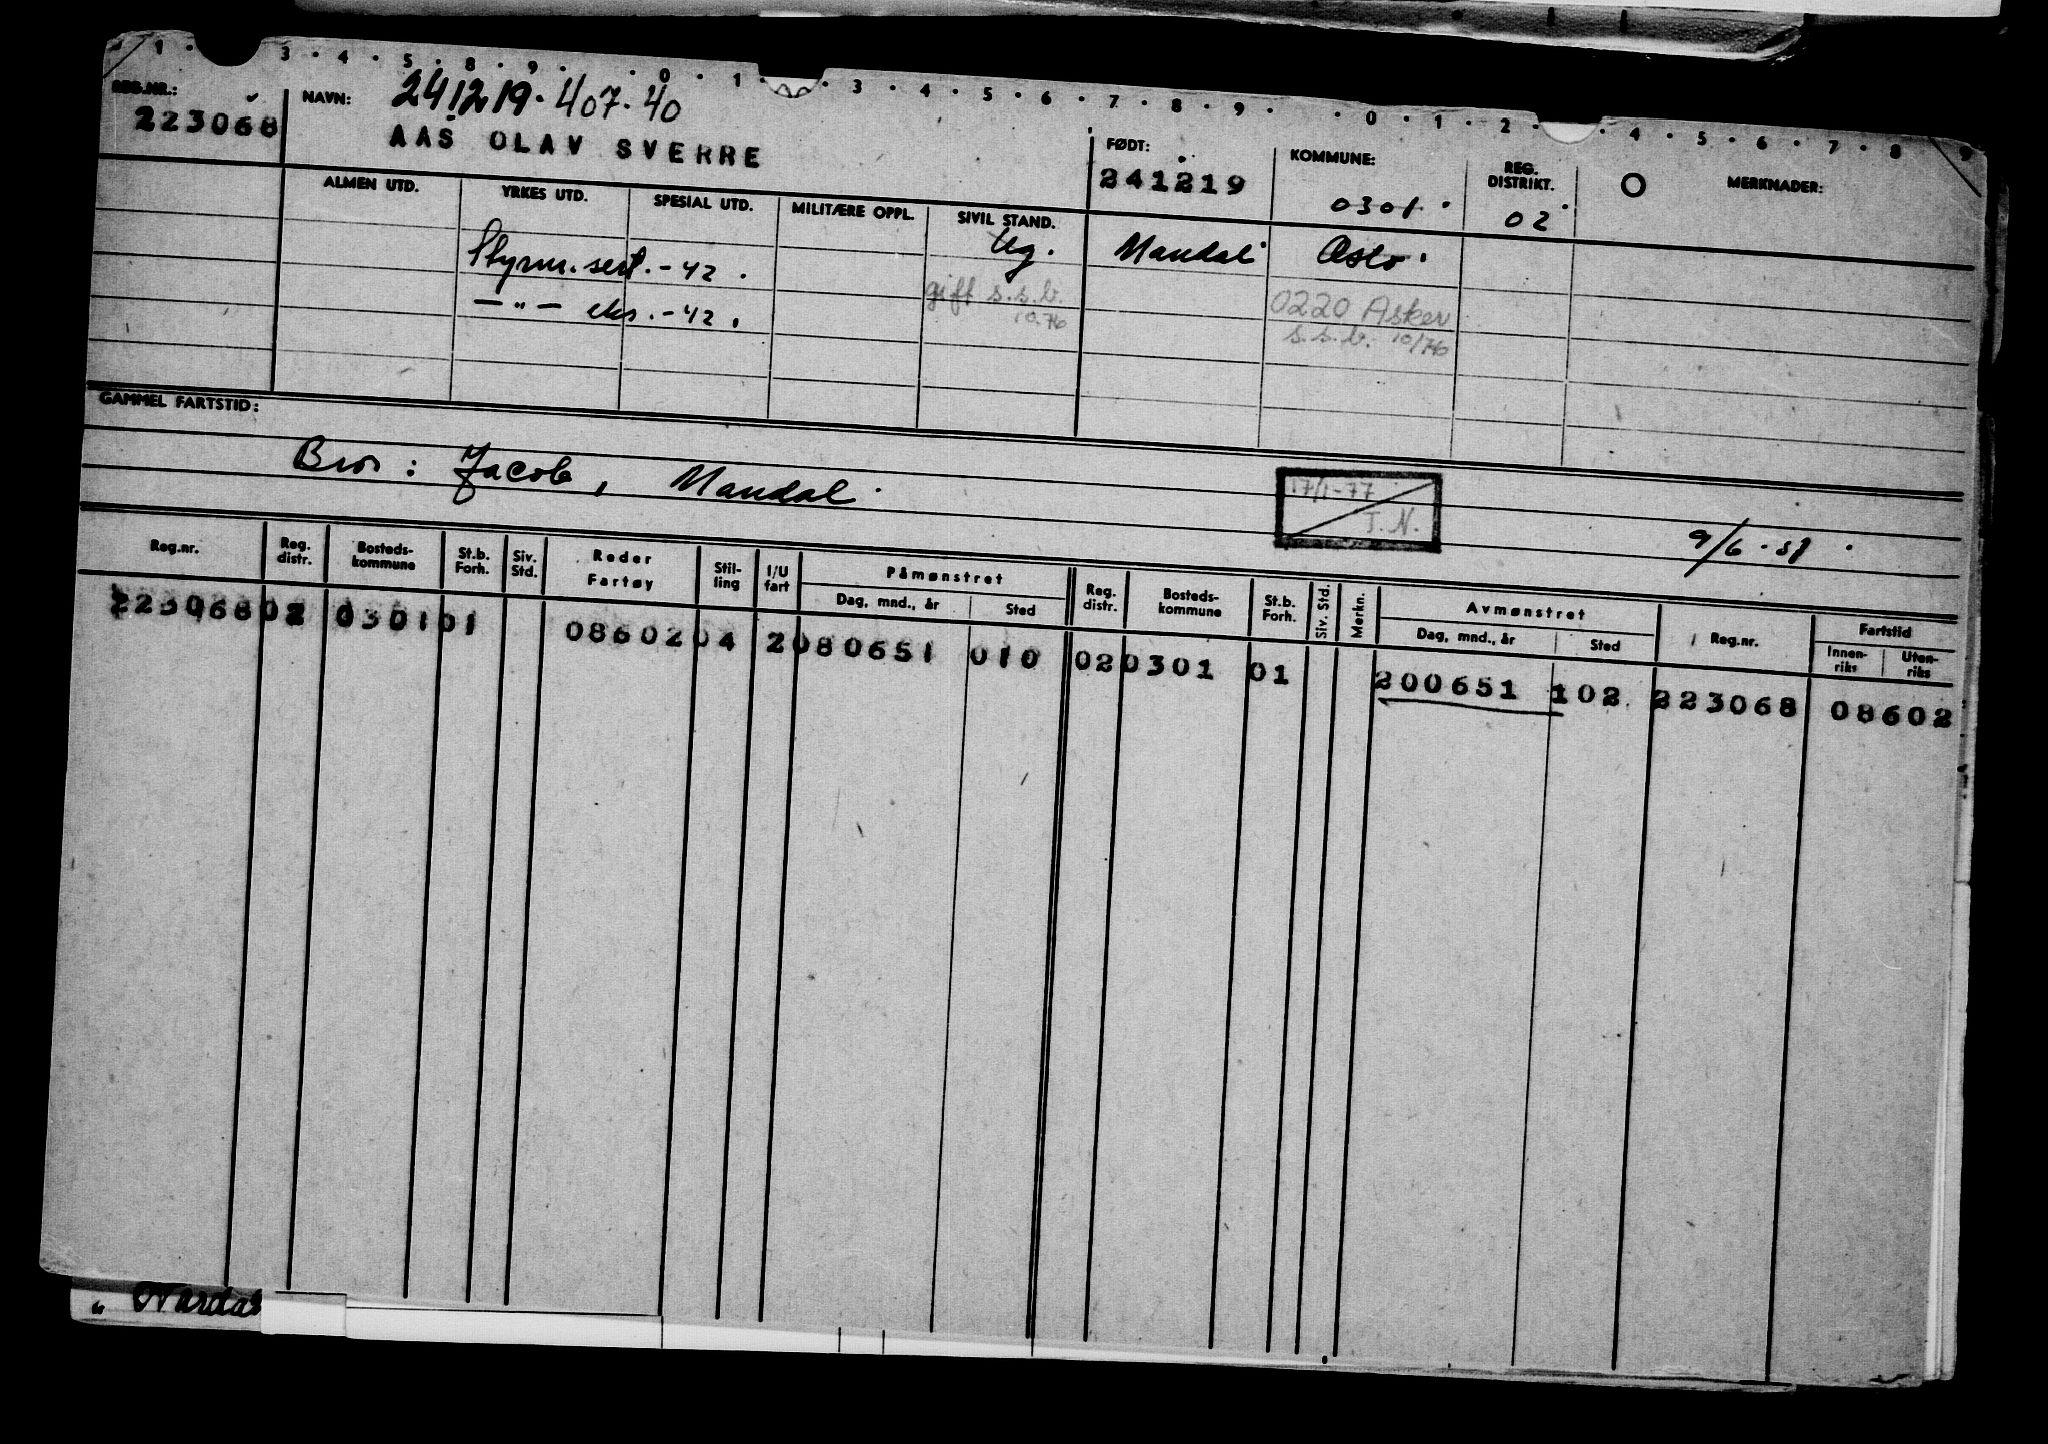 1 · 3 · 4 · 5 · 8 · 9 · · 0 · 1 · · 3 · 4 · 5 · 6 · 7 · 8 · 9 · · 0 · 1 · 2 · · 4 · 5 · 6 · 7 · 8 9
REG.NR.: NAVN: 241219. 407.40
223068 AAS OLAV SVERRE
FØDT: KOMMUNE: REG. DISTRIKT. O MERKNADER:
241219 0301 02
ALMEN UTD. YRKES UTD. SPESIAL UTD. MILITÆRE OPPL. SIVIL STAND.
Styrm. sert. - 42. Ug. Mandal Oslo
— " — eks. - 42. gift s.s.b. 10.76 0220 Asker
s.s.b. 10/76
GAMMEL FARTSTID:
Bror: Jacob, Mandal
17/1-77
T. N.
9/6.51
Reg.nr. Reg. distr. Bosteds-kommune St.b. Forh. Siv. Std. Reder Fartøy Stil-ling I/U fart Påmønstret Dag, mnd., år Sted Reg. distr. Bosteds-kommune St.b. Forh. Siv. Std. Merkn. Avmønstret Dag, mnd., år Sted Reg.nr. Fartstid Innen-riks Uten-riks
223068 02 0301 01 08602 04 2 080651 010 02 0301 01 200651 102 223068 08602